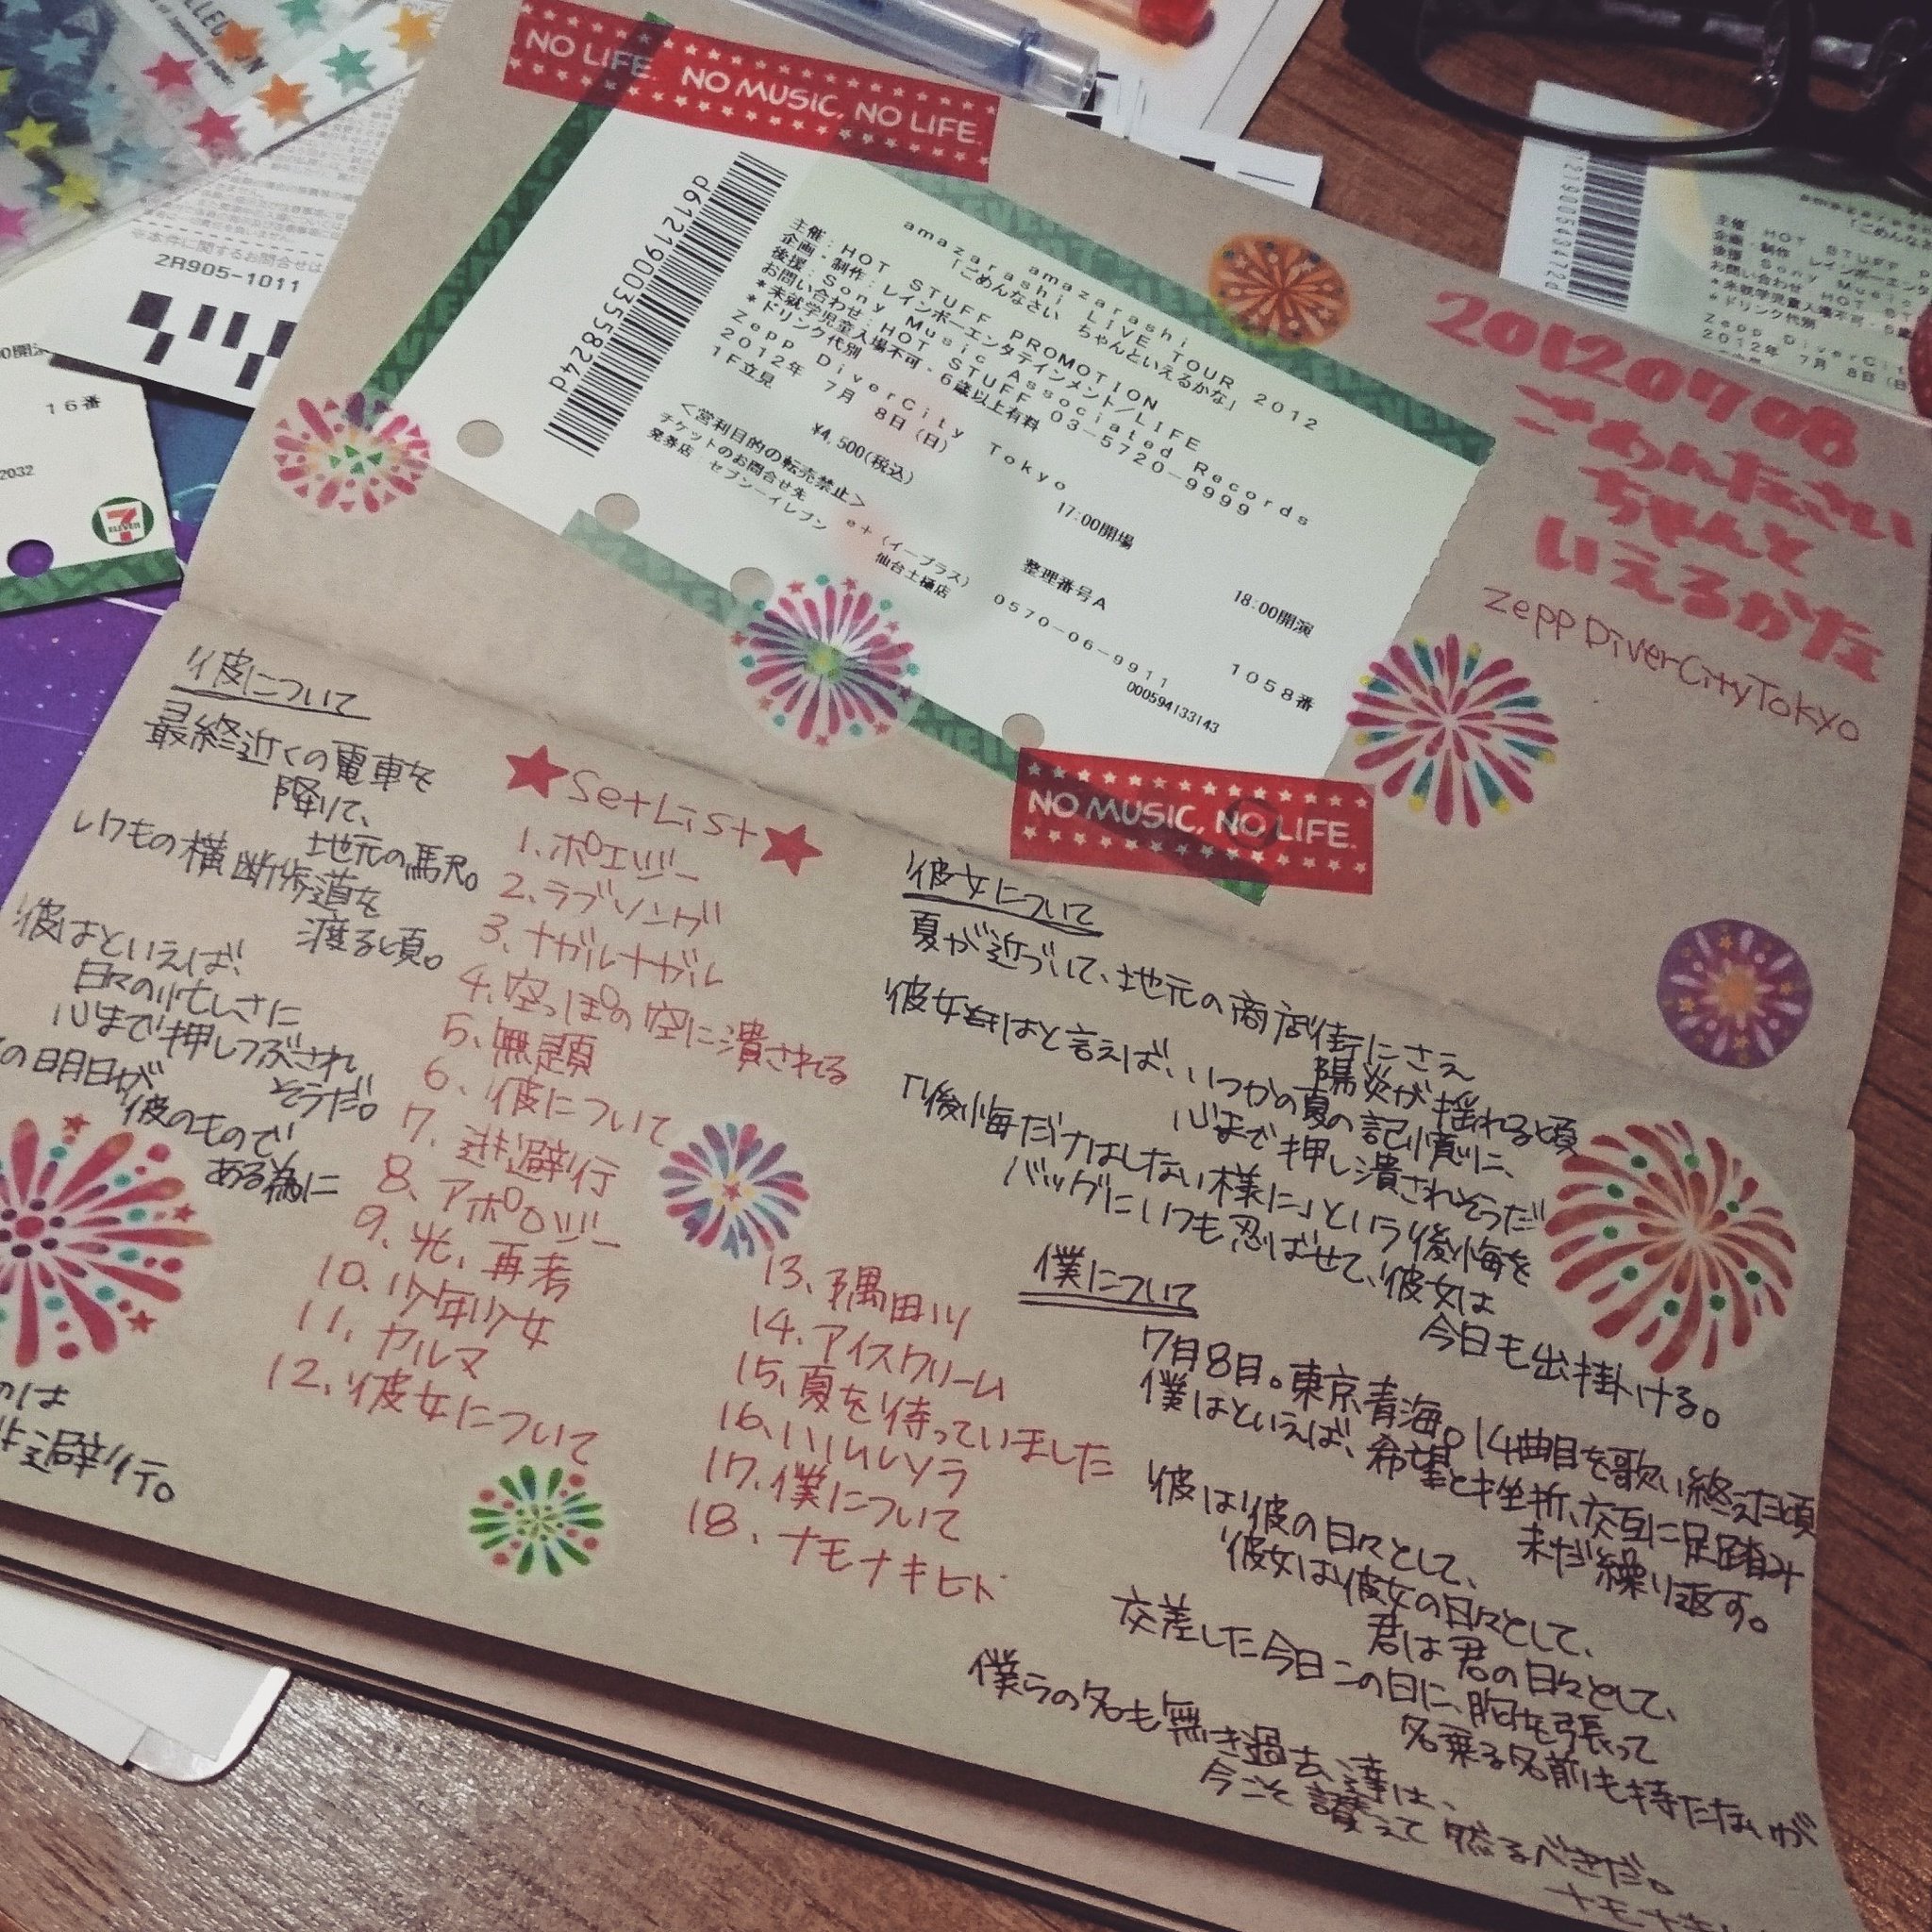 NO LIFE. NO MUSIC, NO LIFE.
amazarashi
amazarashi LIVE TOUR 2012
「ごめんなさい ちゃんといえるかな」
主催:HOT STUFF PROMOTION
企画・制作:レインボーエンタテインメント/LIFE
後援:Sony Music Associated Records
お問い合わせ:HOT STUFF 03-5720-9999
*未就学児童入場不可・6歳以上有料
*ドリンク代別
Zepp DiverCity Tokyo
2012年 7月 8日(日) 17:00開場 18:00開演
1F立見 整理番号A 1058番
¥4,500(税込)
<営利目的の転売禁止>
チケットのお問合せ先 e+(イープラス) 0570-06-9911
発券店:セブン-イレブン 仙台土樋店 000594133143
d6121900355824d
NO MUSIC, NO LIFE.
20120708
ごめんなさい
ちゃんと
いえるかな
Zepp DiverCityTokyo
彼について
最終近くの電車を
降りて、
地元の駅。
いつもの横断歩道を
渡る頃。
彼はといえば、
日々の忙しさに
心まで押しつぶされ
そうだ。
の明日が
彼のもので
ある為に
のは
逃避行。
★SetList★
1、ポエジー
2、ラブソング
3、ナガルナガル
4、空っぽの空に潰される
5、無題
6、彼について
7、逃避行
8、アポロジー
9、光、再考
10、少年少女
11、カルマ
12、彼女について
13、隅田川
14、アイスクリーム
15、夏を待っていました
16、ハルルソラ
17、僕について
18、ナモナキヒト
彼女について
夏が近づいて、地元の商店街にさえ
陽炎が揺れる頃
彼女はと言えば、いつかの夏の記憶に、
心まで押し潰されそうだ
「後悔だけはしない様に」という後悔を
バッグにいつも忍ばせて、彼女は
今日も出掛ける。
僕について
7月8日。東京青海。14曲目を歌い終えた頃
僕はといえば、希望と挫折、交互に足踏み
未だ繰り返す。
彼は彼の日々として、
彼女は彼女の日々として、
君は君の日々として、
交差した今日この日に、胸を張って
名乗る名前も持たないが
僕らの名も無き過去達は、
今こそ讃えて然るべきだ。
※本件に関するお問合せは
2R905-1011
16番
2032
7 ELEVEN
主催:HOT STUFF P
企画・制作 レインボーエンタ
後援 Sony Music
*未就学児童入場不可・6歳
*ドリンク代別
Zepp DiverCit
2012年 7月 8日(日